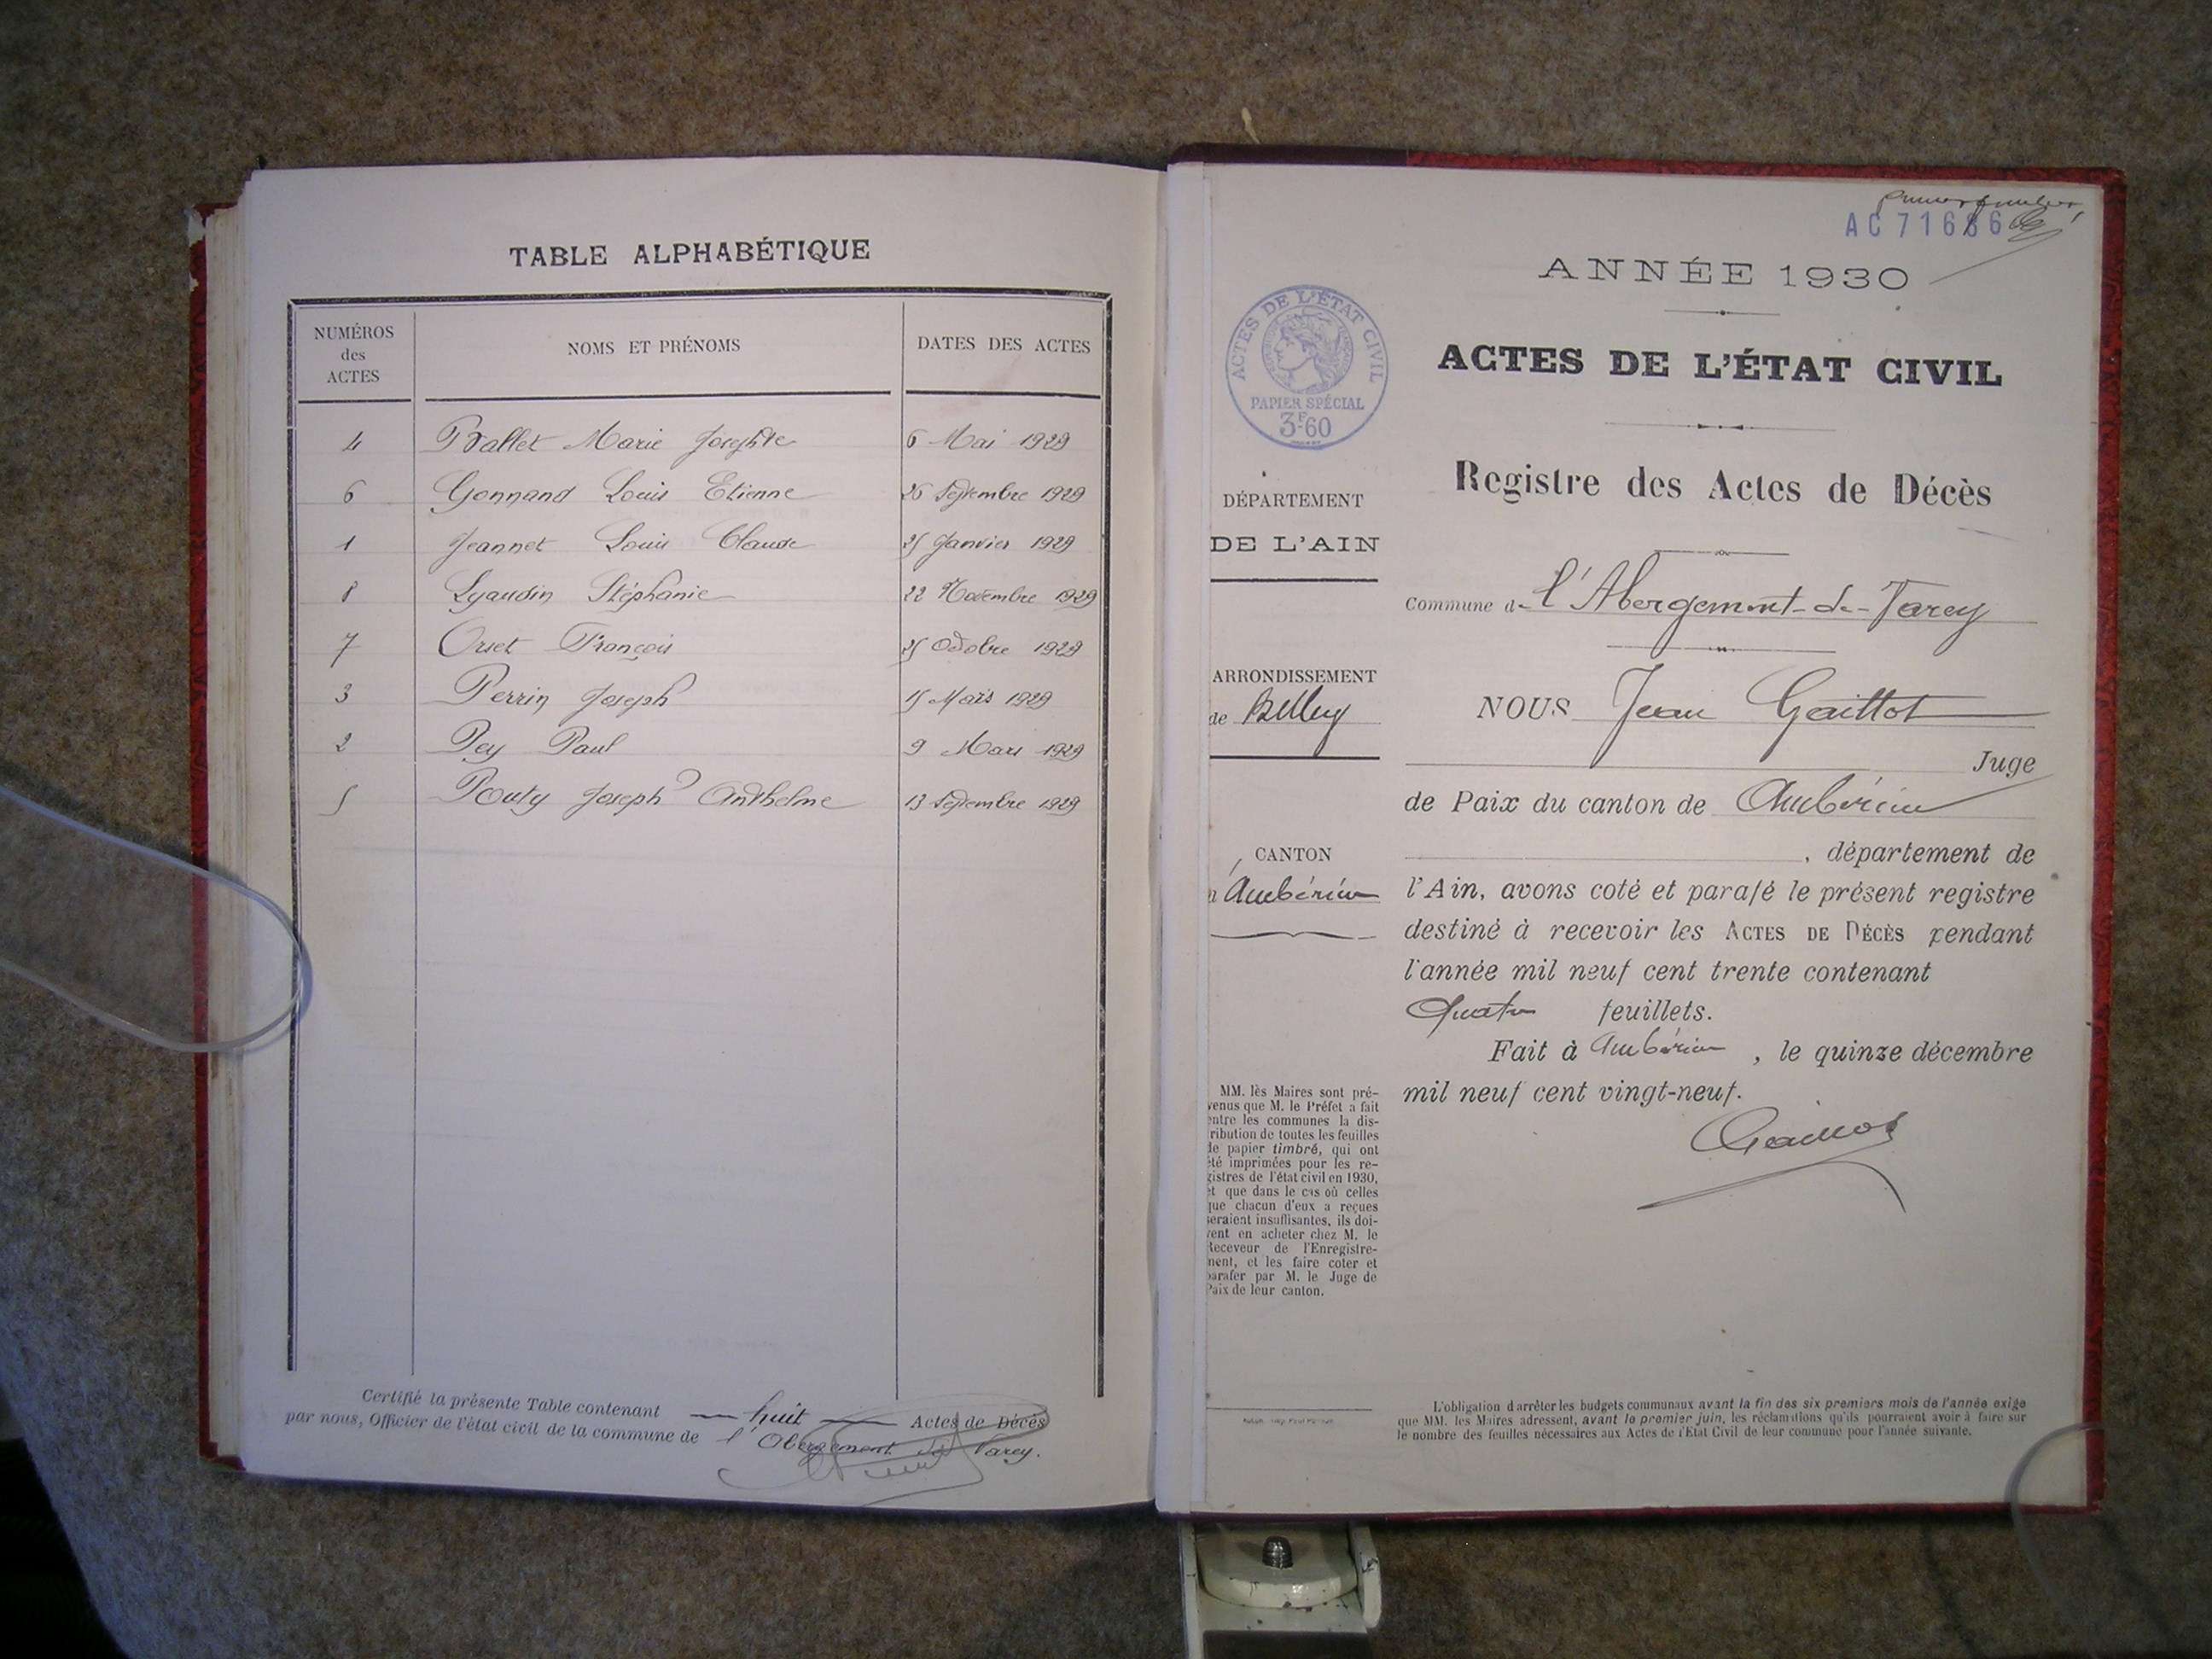 TABLE ALPHABÉTIQUE
NUMÉROS des ACTES NOMS ET PRÉNOMS DATES DES ACTES
4 Ballet Marie Josephte 6 Mai 1929
6 Gonnand Louis Etienne 26 Septembre 1929
1 Jeannet Louis Claude 25 Janvier 1929
8 Lyaudin Stéphanie 22 Novembre 1929
7 Orset François 25 Octobre 1929
3 Perrin Joseph 15 Mars 1929
2 Pey Paul 9 Mars 1929
5 Pouty Joseph Anthelme 13 Septembre 1929
Certifié la présente Table contenant huit Actes de Décès
par nous, Officier de l'état civil de la commune de l'Abergement de Varey.
AC 71686
ANNÉE 1930
ACTES DE L'ÉTAT CIVIL
PAPIER SPÉCIAL
3F60
ACTES DE L'ÉTAT CIVIL
Registre des Actes de Décès
DÉPARTEMENT
DE L'AIN
Commune de l'Abergement-de-Varey
ARRONDISSEMENT
de Belley
NOUS Jean Gaittot
Juge
de Paix du canton de Ambérieu
, département de
CANTON
Ambérieu
l'Ain, avons coté et parafé le présent registre
destiné à recevoir les ACTES DE DÉCÈS pendant
l'année mil neuf cent trente contenant
Quatre feuillets.
Fait à Ambérieu , le quinze décembre
mil neuf cent vingt-neuf.
MM. les Maires sont pré-
venus que M. le Préfet a fait
entre les communes la dis-
tribution de toutes les feuilles
de papier timbré, qui ont
été imprimées pour les re-
gistres de l'état civil en 1930,
et que dans le cas où celles
que chacun d'eux a reçues
seraient insuffisantes, ils doi-
vent en acheter chez M. le
Receveur de l'Enregistre-
ment, et les faire coter et
parafer par M. le Juge de
Paix de leur canton.
L'obligation d'arrêter les budgets communaux avant la fin des six premiers mois de l'année exige
que MM. les Maires adressent, avant le premier juin, les réclamations qu'ils pourraient avoir à faire sur
le nombre des feuilles nécessaires aux Actes de l'Etat Civil de leur commune pour l'année suivante.